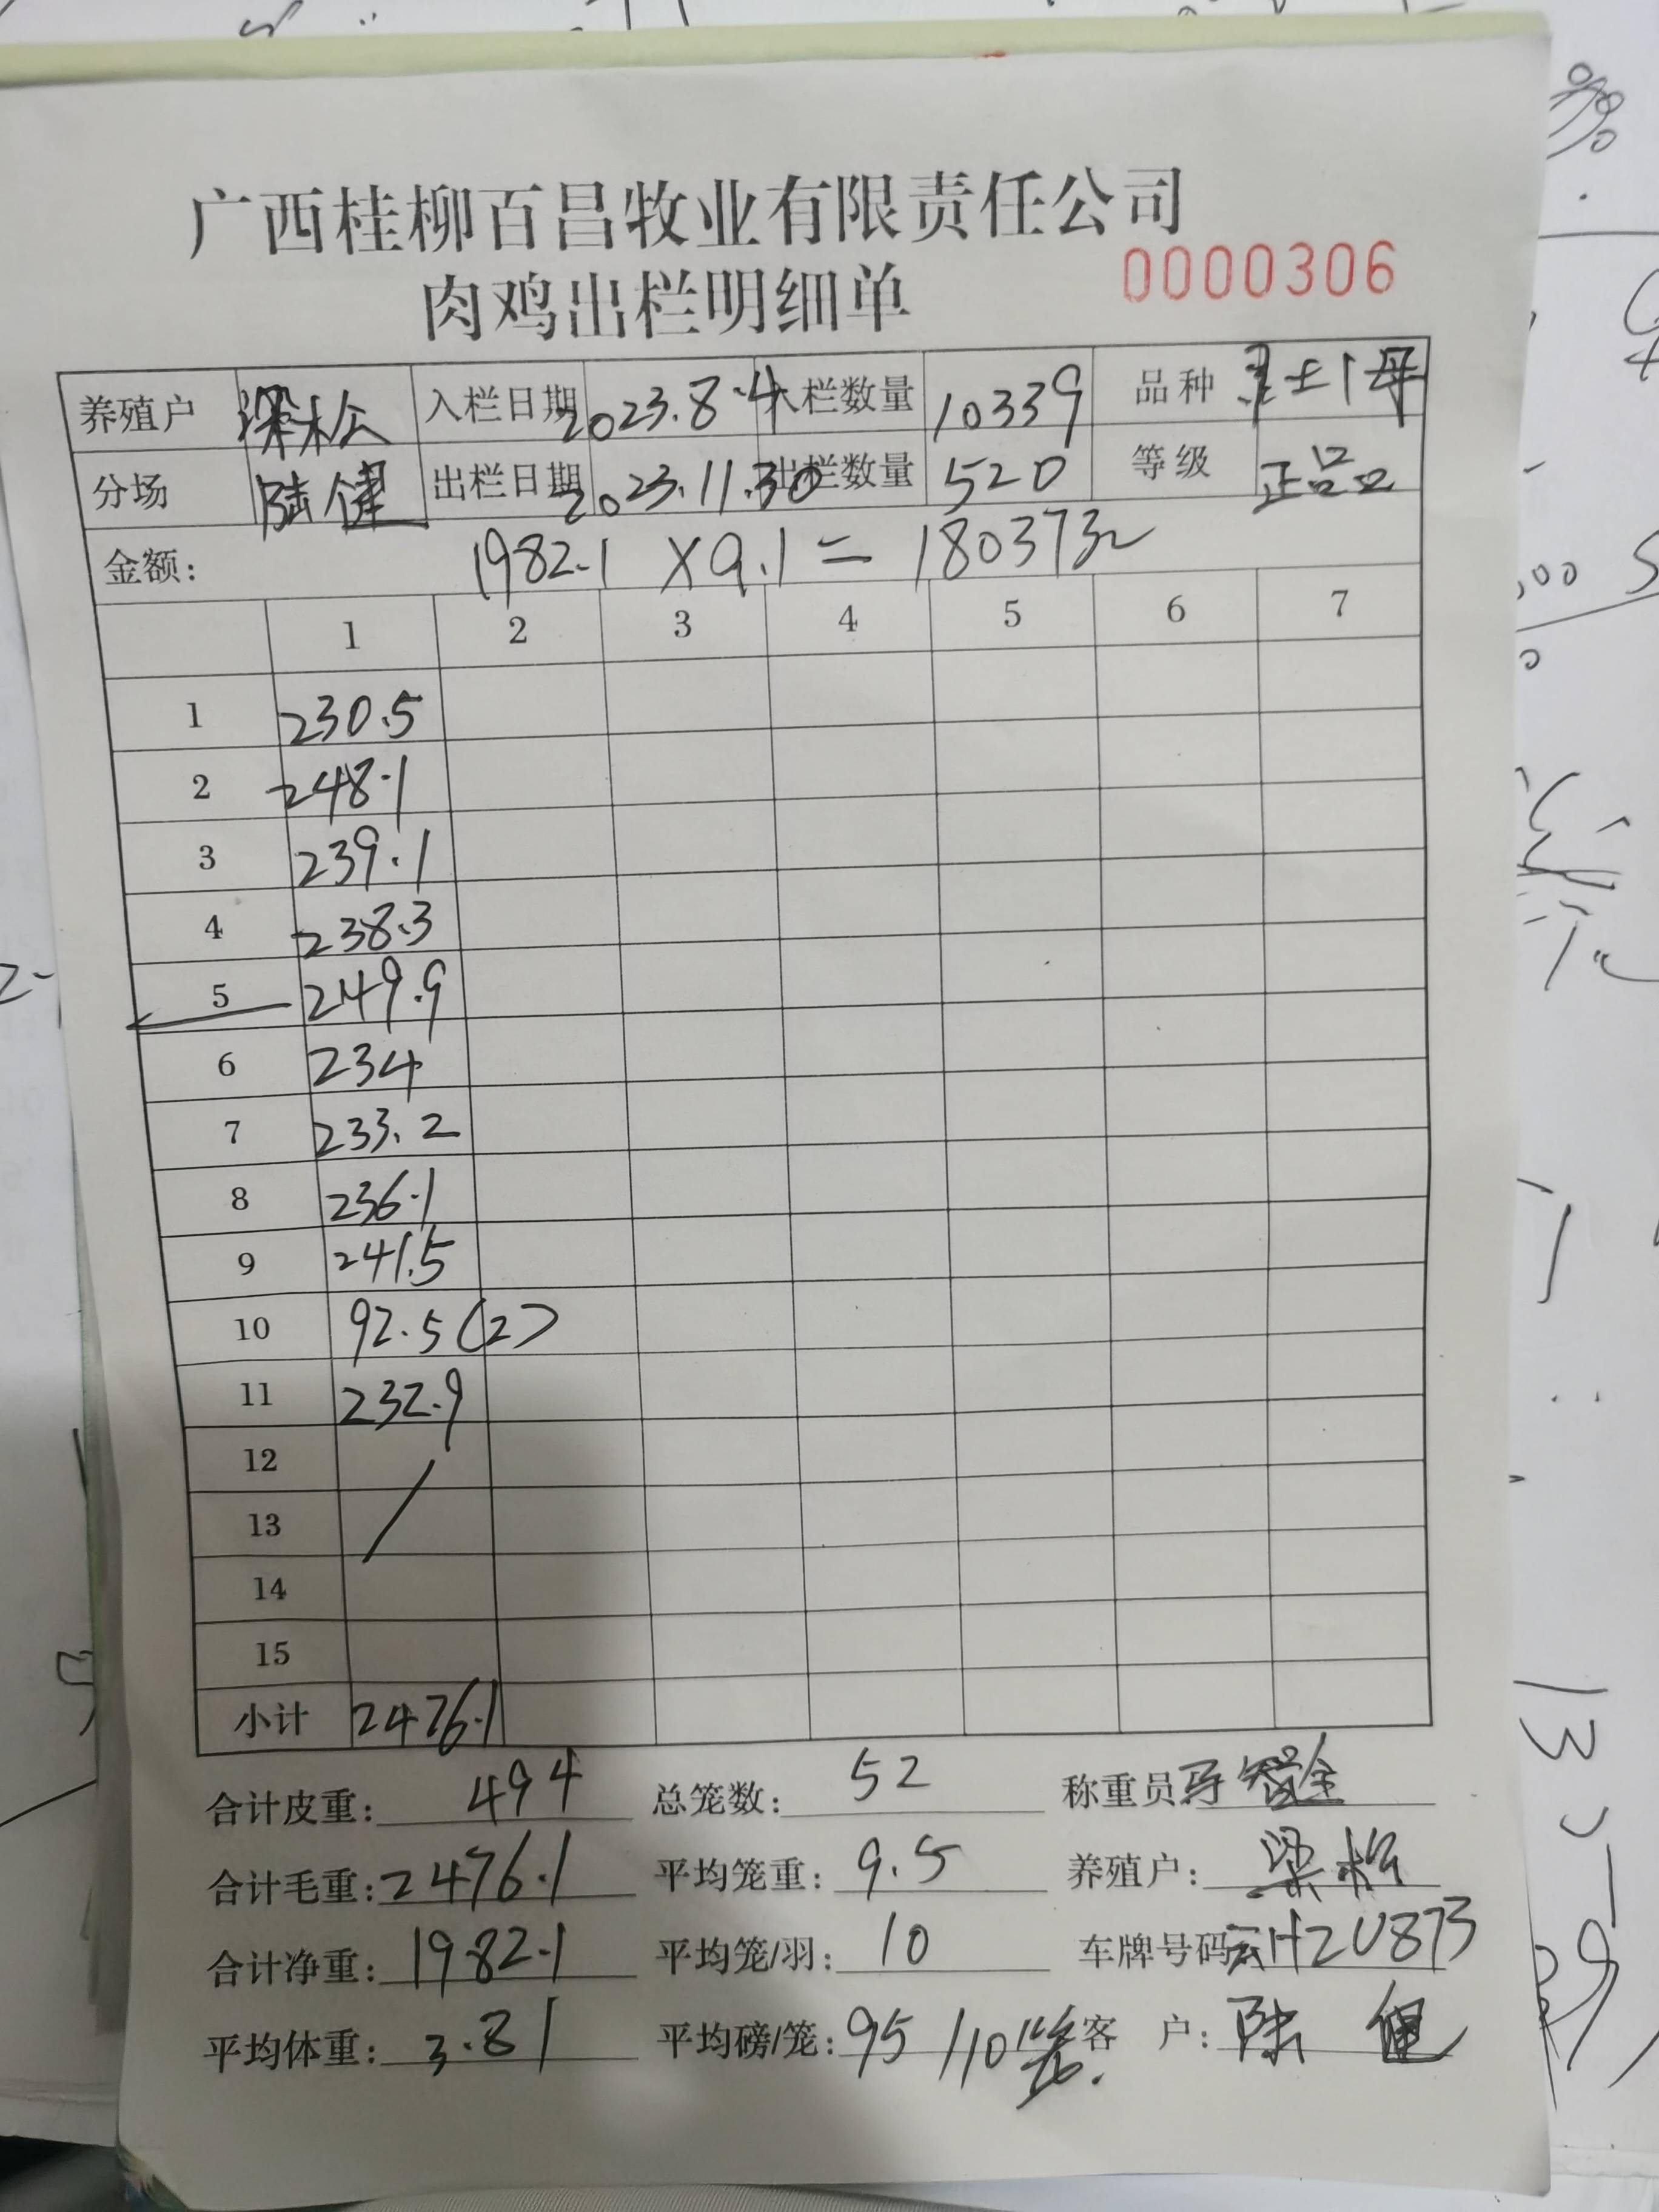 广西桂柳百昌牧业有限责任公司
肉鸡出栏明细单 0000306
养殖户 梁松 入栏日期 2023.8.4 入栏数量 10339 品种 土1母
分场 陆健 出栏日期 2023.11.30 出栏数量 520 等级 正品
金额: 1982.1 × 9.1 = 18037元
1 2 3 4 5 6 7
1 230.5
2 248.1
3 239.1
4 238.3
5 249.9
6 234
7 233.2
8 236.1
9 241.5
10 92.5(2)
11 232.9
12
13
14
15
小计 2476.1
合计皮重: 494 总笼数: 52 称重员
合计毛重: 2476.1 平均笼重: 9.5 养殖户: 梁松
合计净重: 1982.1 平均笼/羽: 10 车牌号码 云H20873
平均体重: 3.81 平均磅/笼: 95/10笼. 客 户: 陆健